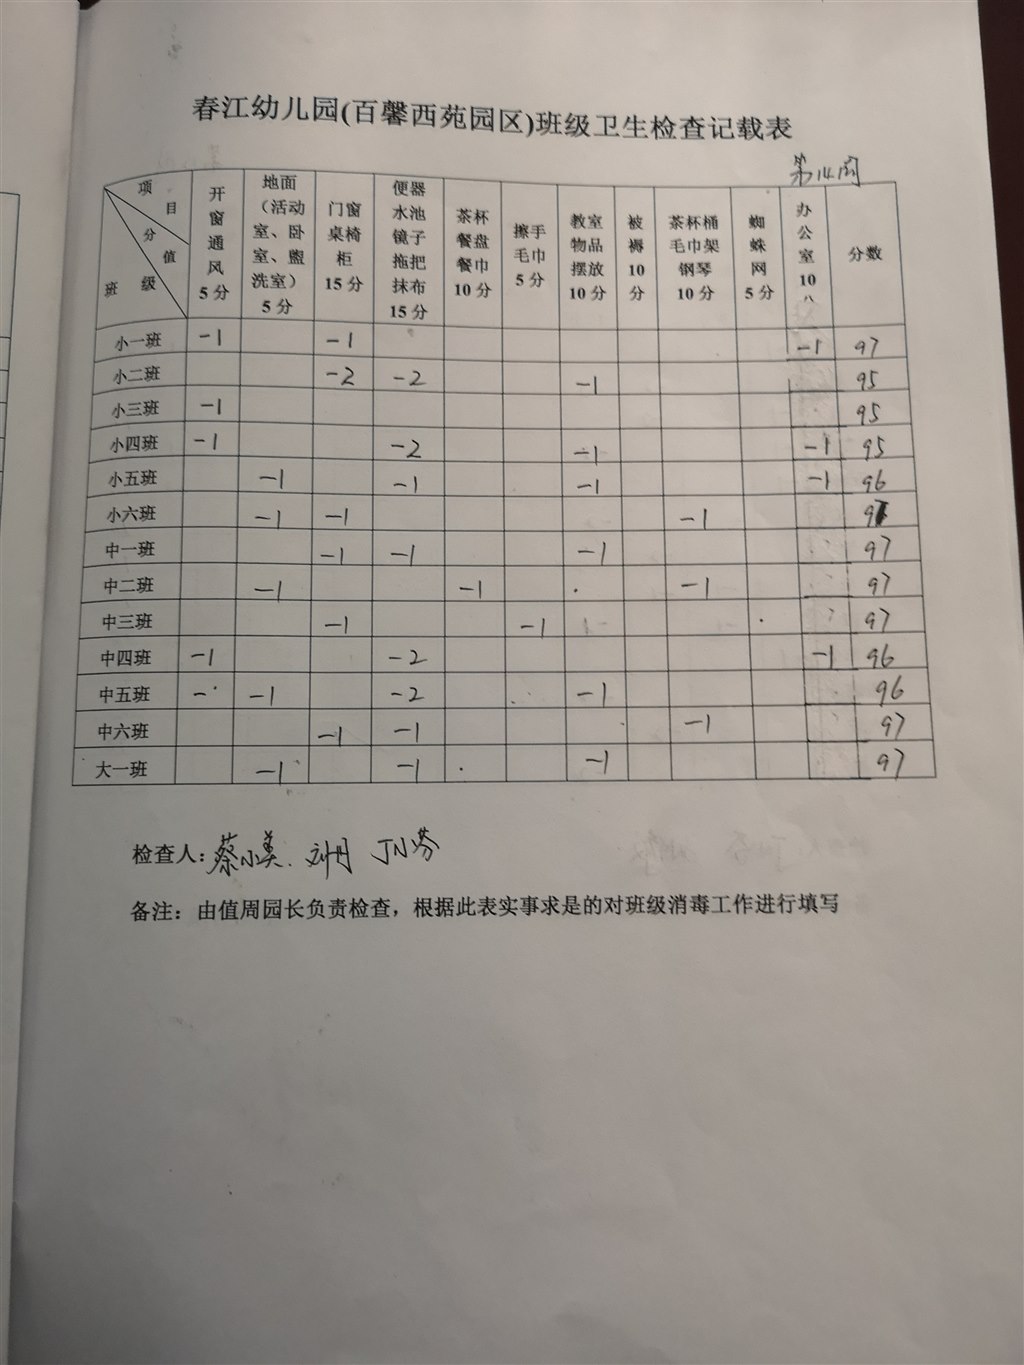 春江幼儿园(百馨西苑园区)班级卫生检查记载表
第14周
项目 分值 班级 开窗通风5分 地面（活动室、卧室、盥洗室）5分 门窗桌椅柜15分 便器水池镜子拖把抹布15分 茶杯餐盘餐巾10分 擦手毛巾5分 教室物品摆放10分 被褥10分 茶杯桶毛巾架钢琴10分 蜘蛛网5分 办公室10 分数
小一班 -1 -1 -1 97
小二班 -2 -2 -1 95
小三班 -1 95
小四班 -1 -2 -1 -1 95
小五班 -1 -1 -1 -1 96
小六班 -1 -1 -1 97
中一班 -1 -1 -1 97
中二班 -1 -1 -1 97
中三班 -1 -1 -1 97
中四班 -1 -2 -1 96
中五班 - -1 -2 -1 96
中六班 -1 -1 -1 97
大一班 -1 -1 -1 97
检查人：蔡小美、刘丹 丁小芬
备注：由值周园长负责检查，根据此表实事求是的对班级消毒工作进行填写